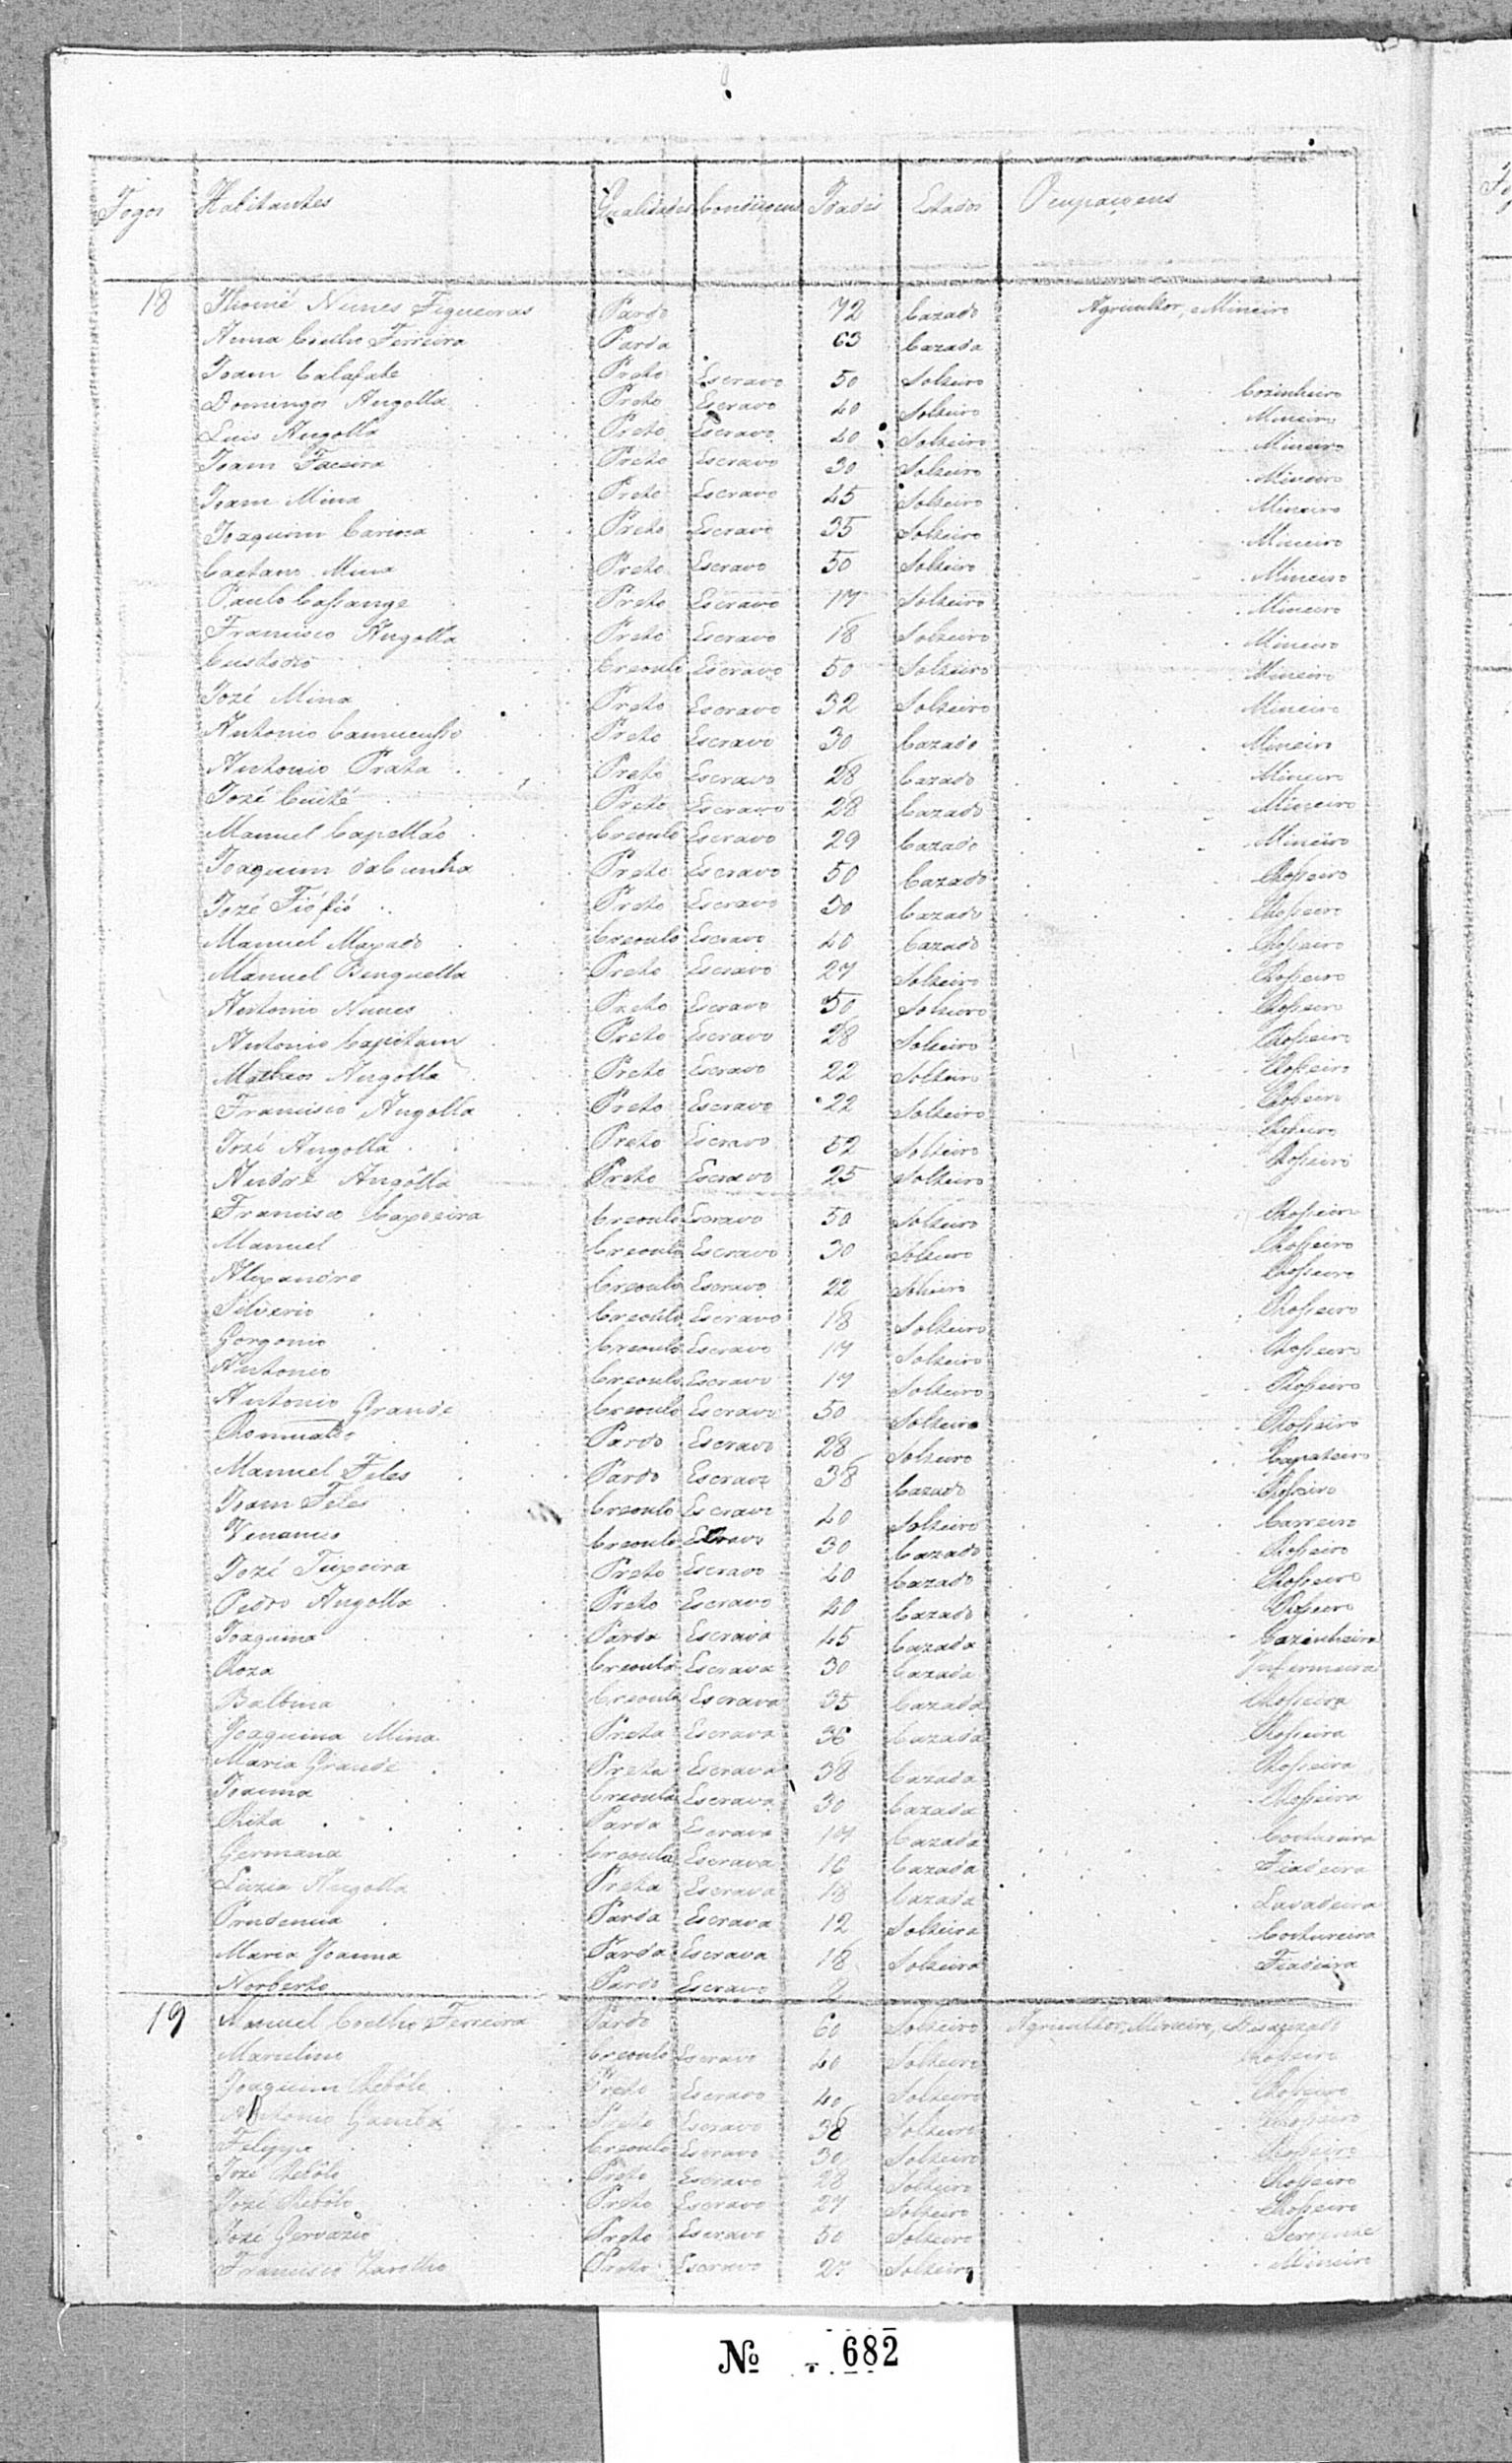 Fogos Habitantes Qualidades Condiçoens Idades Estados Ocupaçoens
18 Thomé Nunes Figueiras Pardo 72 Cazado Agricultor, Mineiro
Anna Coelho Ferreira Parda 63 Cazada
Joam Calafate Preto Escravo 50 Solteiro Cozinheiro
Domingos Angolla Preto Escravo 40 Solteiro Mineiro
Luis Angolla Preto Escravo 40 Solteiro Mineiro
Joam Faceira Preto Escravo 30 Solteiro Mineiro
Joam Mina Preto Escravo 45 Solteiro Mineiro
Joaquim Preto Escravo 35 Solteiro Mineiro
Caetano Mina Preto Escravo 50 Solteiro Mineiro
Paulo Cassange Preto Escravo 17 Solteiro Mineiro
Francisco Angolla Preto Escravo 18 Solteiro Mineiro
Custodio Creoulo Escravo 50 Solteiro Mineiro
Jozé Mina Preto Escravo 32 Solteiro Mineiro
Antonio Preto Escravo 30 Cazado Mineiro
Antonio Prata Preto Escravo 28 Cazado Mineiro
Jozé Cuité Preto Escravo 28 Cazado Mineiro
Manuel Capellão Creoulo Escravo 29 Cazado Mineiro
Joaquim da Cunha Preto Escravo 50 Cazado Rosseiro
Jozé Fiófió Preto Escravo 50 Cazado Rosseiro
Manuel Maxado Creoulo Escravo 40 Cazado Rosseiro
Manuel Benguella Preto Escravo 27 Solteiro Rosseiro
Antonio Nunes Preto Escravo 50 Solteiro Rosseiro
Antonio Capitam Preto Escravo 28 Solteiro Rosseiro
Matheos Angolla Preto Escravo 22 Solteiro Rosseiro
Francisco Angolla Preto Escravo 22 Solteiro Rosseiro
Jozé Angolla Preto Escravo 52 Solteiro Rosseiro
André Angolla Preto Escravo 25 Solteiro Rosseiro
Francisco Capoeira Creoulo Escravo 50 Solteiro Rosseiro
Manuel Creoulo Escravo 30 Solteiro Rosseiro
Alexandre Creoulo Escravo 22 Solteiro Rosseiro
Silverio Creoulo Escravo 18 Solteiro Rosseiro
Gorgonio Creoulo Escravo 17 Solteiro Rosseiro
Antonio Creoulo Escravo 17 Solteiro Rosseiro
Antonio Grande Creoulo Escravo 50 Solteiro Rosseiro
Romualdo Pardo Escravo 28 Solteiro Capateiro
Manuel Teles Pardo Escravo 38 Cazado Rosseiro
Joam Teles Creoulo Escravo 40 Solteiro Carreiro
Venancio Creoulo Escravo 30 Cazado Rosseiro
Jozé Teixeira Preto Escravo 40 Cazado Rosseiro
Pedro Angolla Preto Escravo 40 Cazado Rosseiro
Joaquina Parda Escrava 45 Cazada Cozinheira
Roza Creoula Escrava 30 Cazada Infermeira
Balbina Creoula Escrava 35 Cazada Rosseira
Joaquina Mina Preta Escrava 36 Cazada Rosseira
Maria Grande Preta Escrava 38 Cazada Rosseira
Joanna Creoula Escrava 30 Cazada Rosseira
Rita Parda Escrava 17 Cazada Costureira
Germana Creoula Escrava 16 Cazada Fiadeira
Luzia Angolla Preta Escrava 18 Cazada Lavadeira
Prudencia Parda Escrava 12 Solteira Costureira
Maria Joanna Parda Escrava 18 Solteira Fiadeira
Norberto Pardo Escravo 2
19 Manuel Coelho Ferreira Pardo 60 Solteiro Agricultor, Mineiro,
Marcelino Creoulo Escravo 40 Solteiro Rosseiro
Joaquim Rebôlo Preto Escravo 40 Solteiro Rosseiro
Antonio Gambá Preto Escravo 38 Solteiro Rosseiro
Felippe Creoulo Escravo 30 Solteiro Rosseiro
Jozé Rebôlo Preto Escravo 28 Solteiro Rosseiro
Jozé Rebôlo Preto Escravo 27 Solteiro Rosseiro
Jozé Gervazio Preto Escravo 50 Solteiro
Francisco Zarolho Preto Escravo Solteiro Mineiro
No 682